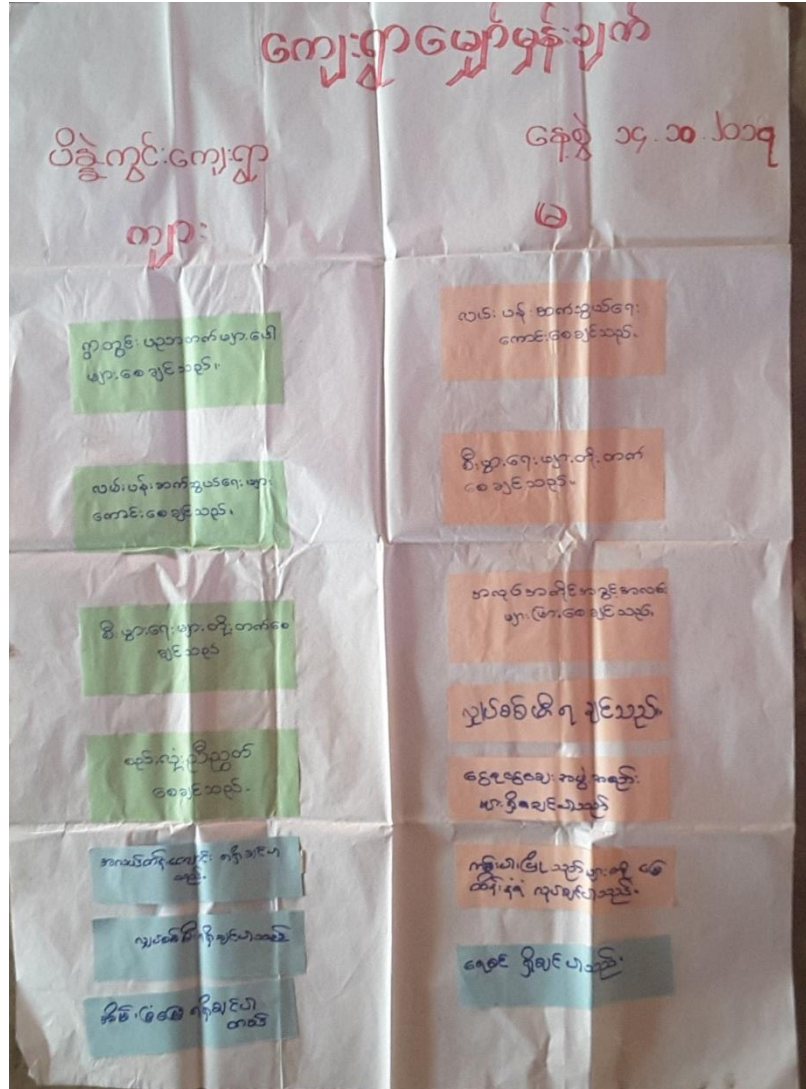 ကျေးရွာမျှော်မှန်းချက်
ပိန္နဲကွင်းကျေးရွာ
နေ့စွဲ ၁၄.၁၀.၂၀၁၇
ကျား
မ
ရွာတွင်း ပညာတတ်များပေါ
များစေချင်သည်။
လမ်းပန်းဆက်သွယ်ရေးများ
ကောင်းစေချင်သည်။
စီးပွားရေးများတိုးတက်စေ
ချင်သည်
စည်းလုံးညီညွတ်
စေချင်သည်။
ကျောင်း ရရှိချင်ပါ
သည်။
လျှပ်စစ်မီးရရှိချင်ပါသည်
အိမ်ခြံမြေ ရရှိချင်ပါ
တယ်
လမ်းပန်းဆက်သွယ်ရေး
ကောင်းစေချင်သည်။
စီးပွားရေးများတိုးတက်
စေချင်သည်။
အလုပ်အကိုင်အခွင့်အလမ်း
များပြားစေချင်သည်။
လျှပ်စစ်မီးရချင်သည်။
ငွေစုငွေချေးအဖွဲ့အစည်း
များရှိစေချင်ပါသည်
သည်များကို
လုပ်ချင်ပါသည်။
ရေစင် ရှိချင်ပါသည်။